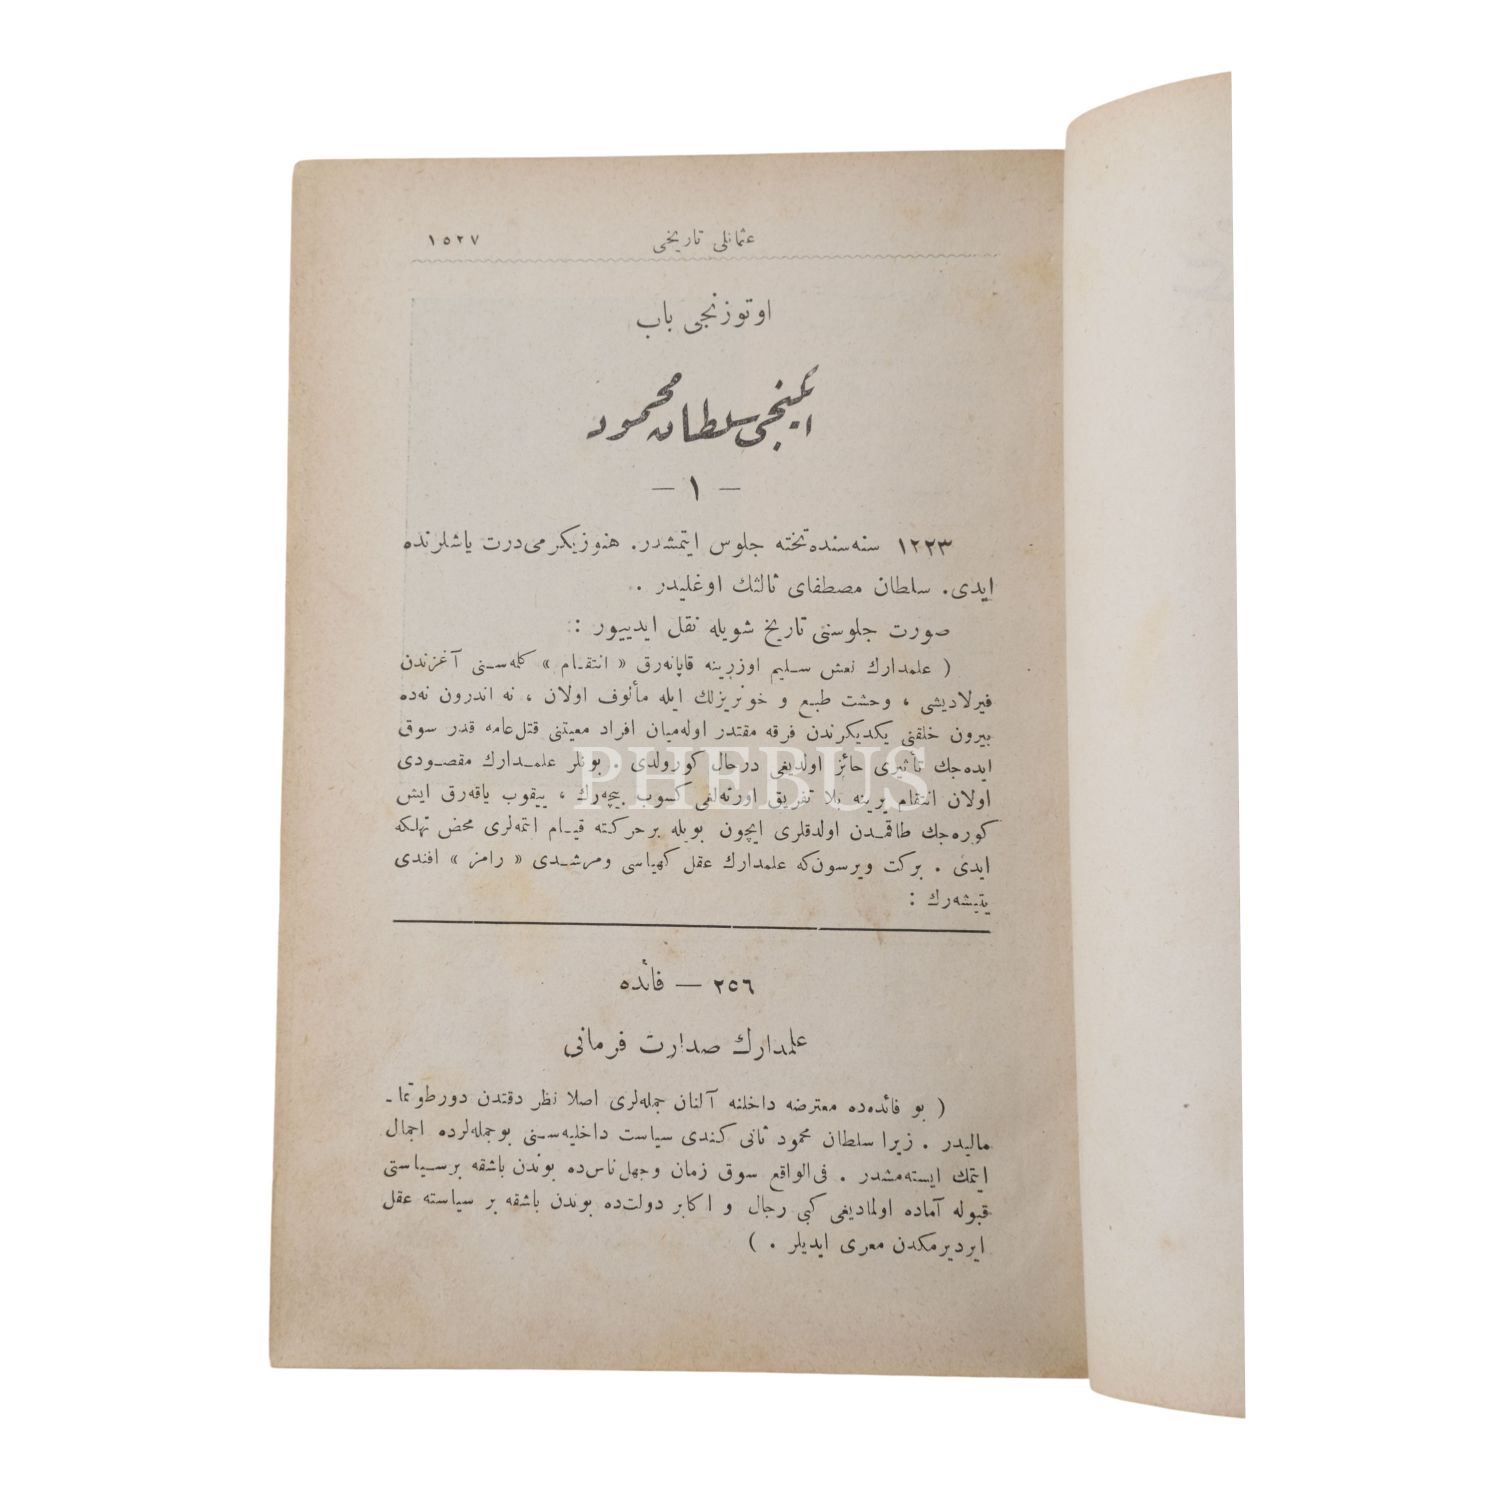 عثمانلی تاریخی ١٥٢٧
اوتوزنجی باب
ایکنجی سلطان محمود
— ١ —
١٢٢٣ سنه‌سنده تخته جلوس ایتمشدر. هنوز یکرمی درت یاشلرنده
ایدی. سلطان مصطفای ثالثك اوغلیدر .
صورت جلوسنی تاریخ شویله نقل ایدییور :
( علمدارك نعش سلیم اوزرینه قاپانه‌رق « انتقام » کله‌سنی آغزندن
فیرلادیشی ، وحشت طبع و خونریزلك ایله مألوف اولان ، نه اندرون نه‌ده
بیرون خلقنی یکدیکرندن فرقه مقتدر اوله‌میان افراد معیتنی قتل عامه قدر سوق
ایده‌جك تأثیری حائز اولدیغی درحال کورولدی . بونلر علمدارك مقصودی
اولان انتقام یرینه بلا تفریق اورته‌لغی کسوب بیچه‌رك ، ییقوب یاقه‌رق ایش
کوره‌جك طاقمدن اولدقلری ایچون بویله بر حرکته قیام اتمه‌لری محض تهلکه
ایدی . برکت ویرسون‌که علمدارك عقل کهیاسی ومرشدی « رامز » افندی
یتیشه‌رك :
٢٥٦ — فائده
علمدارك صدارت فرمانی
( بو فائده‌ده معترضه داخلنه آلنان جمله‌لری اصلا نظر دقتدن دور طوتما‌ـ
مالیدر . زیرا سلطان محمود ثانی کندی سیاست داخلیه‌سنی بو جمله‌لرده اجمال
ایتمك ایسته‌مشدر . فی‌الواقع سوق زمان وجهل ناس‌ده بوندن باشقه بر سیاستی
قبوله آماده اولمادیغی کبی رجال و اکابر دولت‌ده بوندن باشقه بر سیاسته عقل
ایردیرمکدن معری ایدیلر . )
PHEBUS